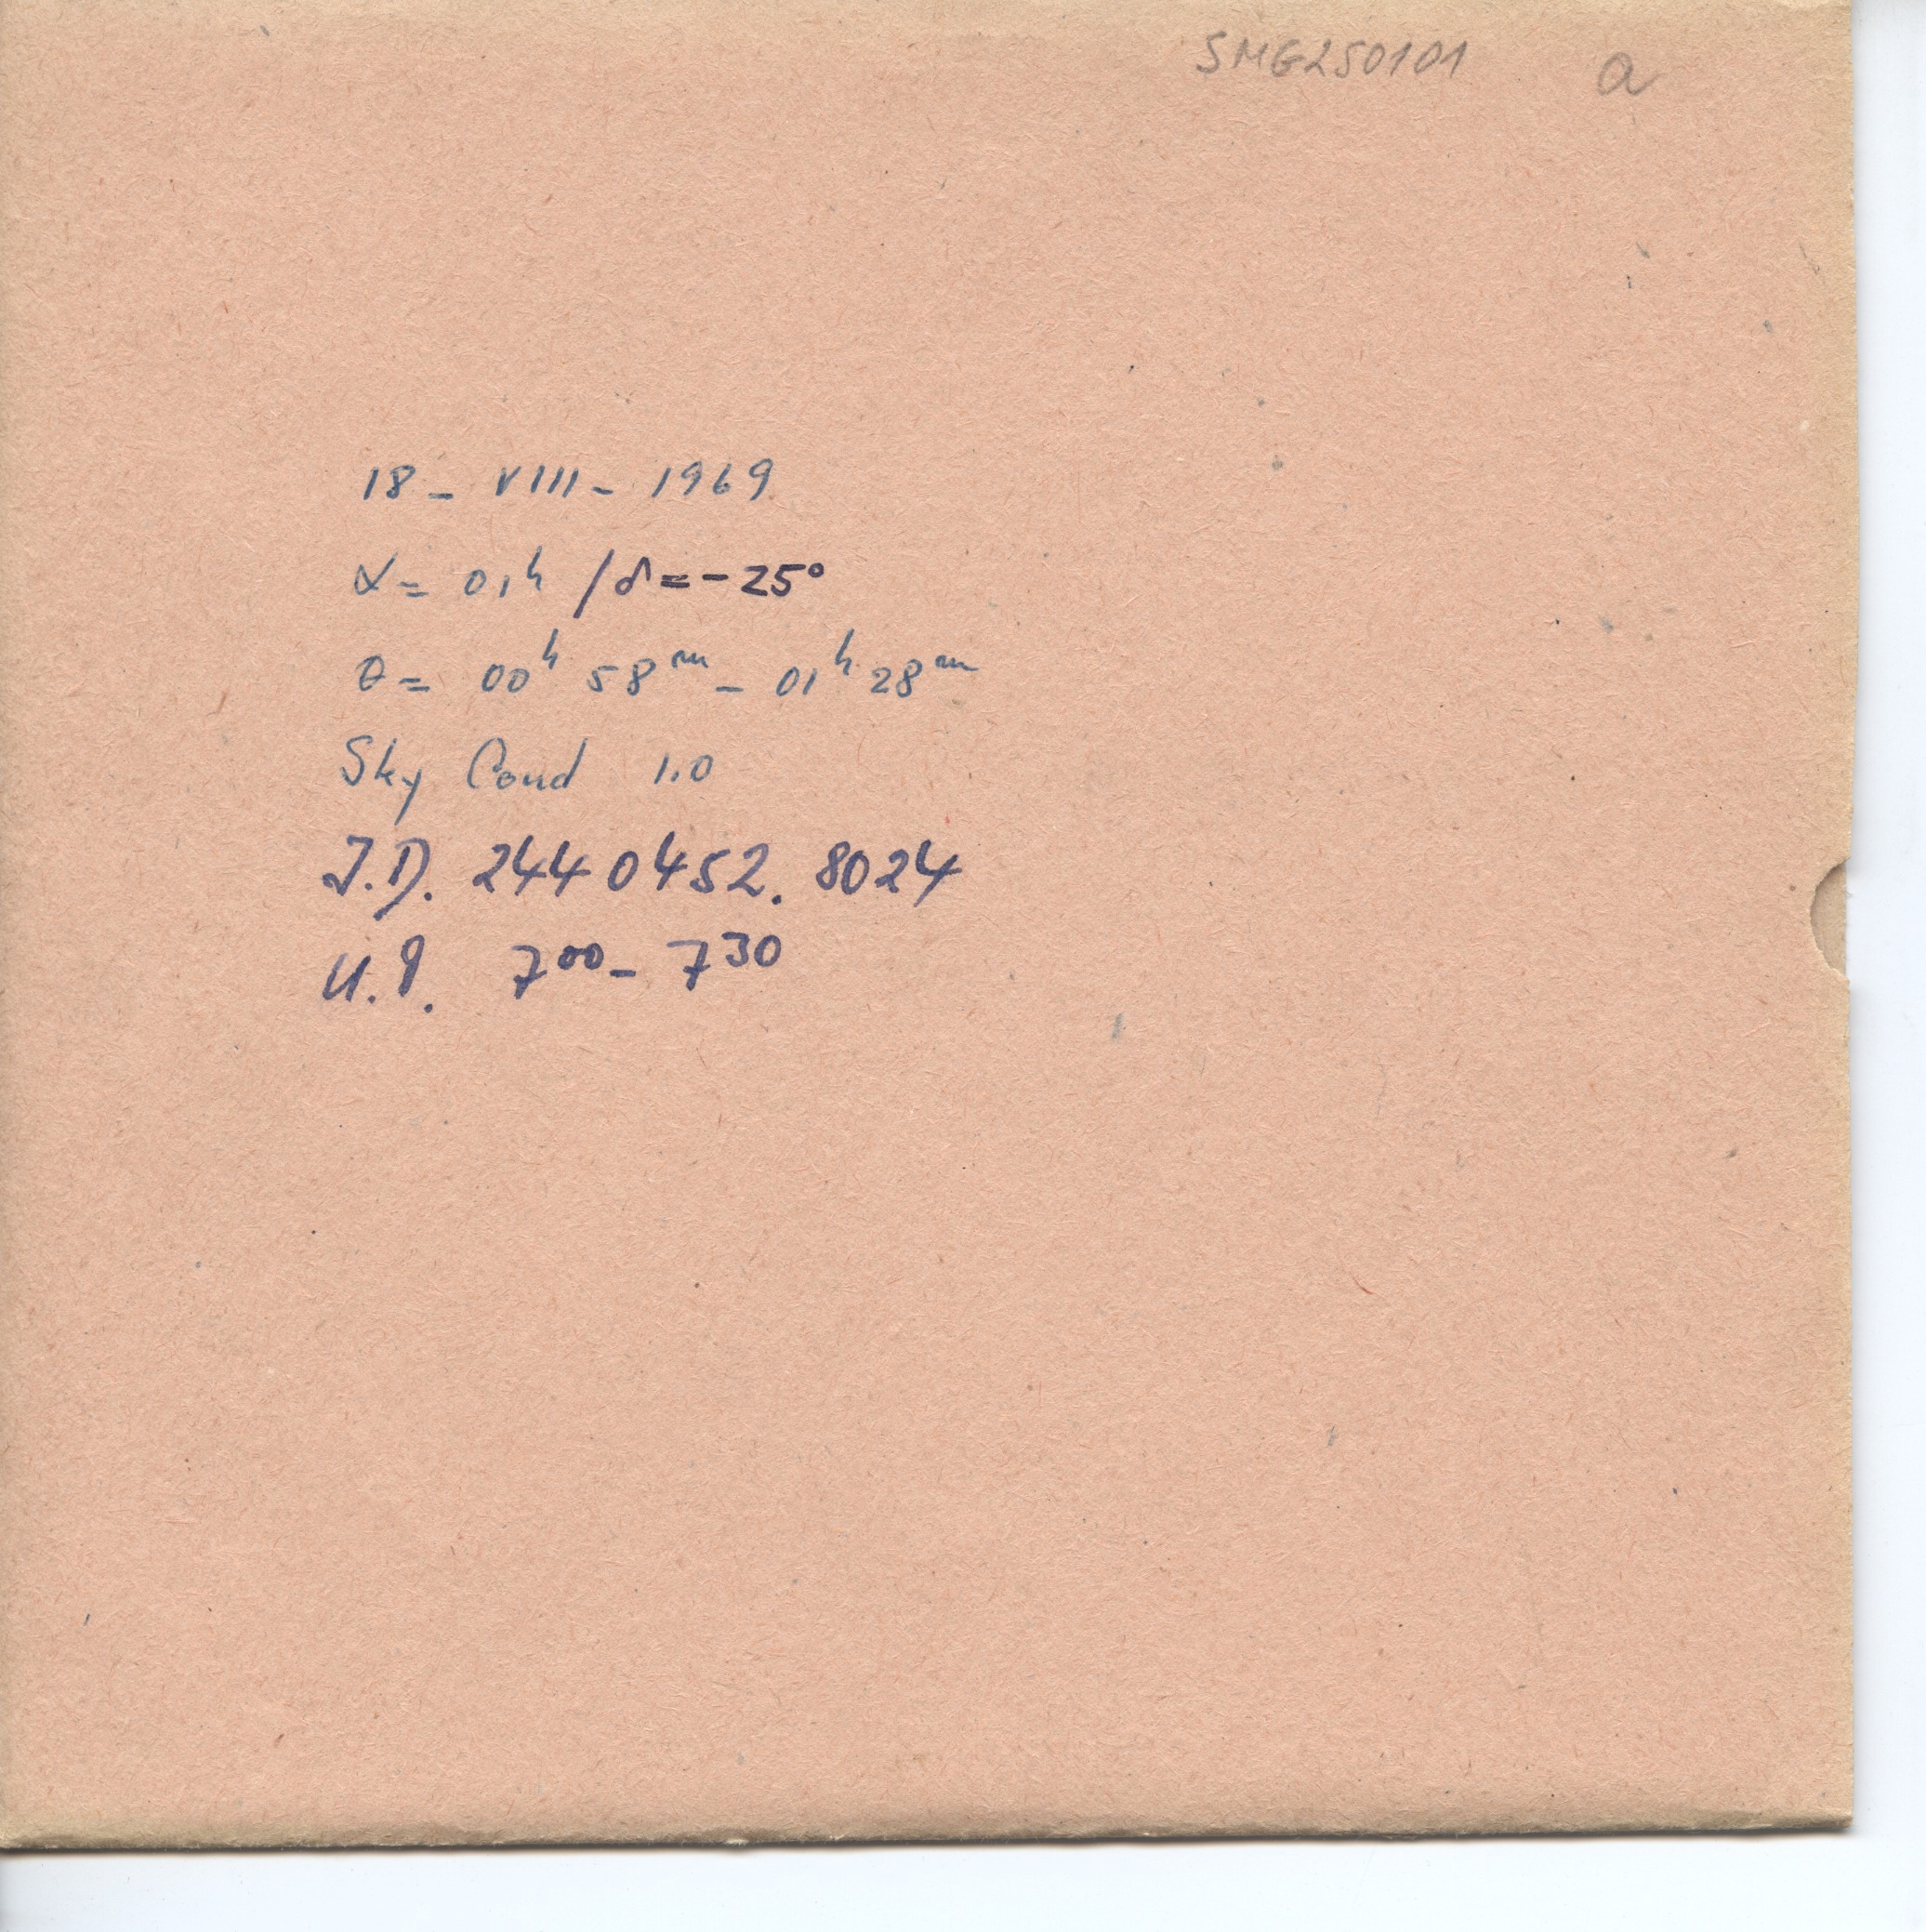 SMG250101 a
18 - VIII - 1969
α = 01ʰ / δ = - 25°
θ = 00ʰ 58ᵐ - 01ʰ 28ᵐ
Sky Cond 1.0
J.D. 2440452.8024
U.T. 7⁰⁰ - 7³⁰